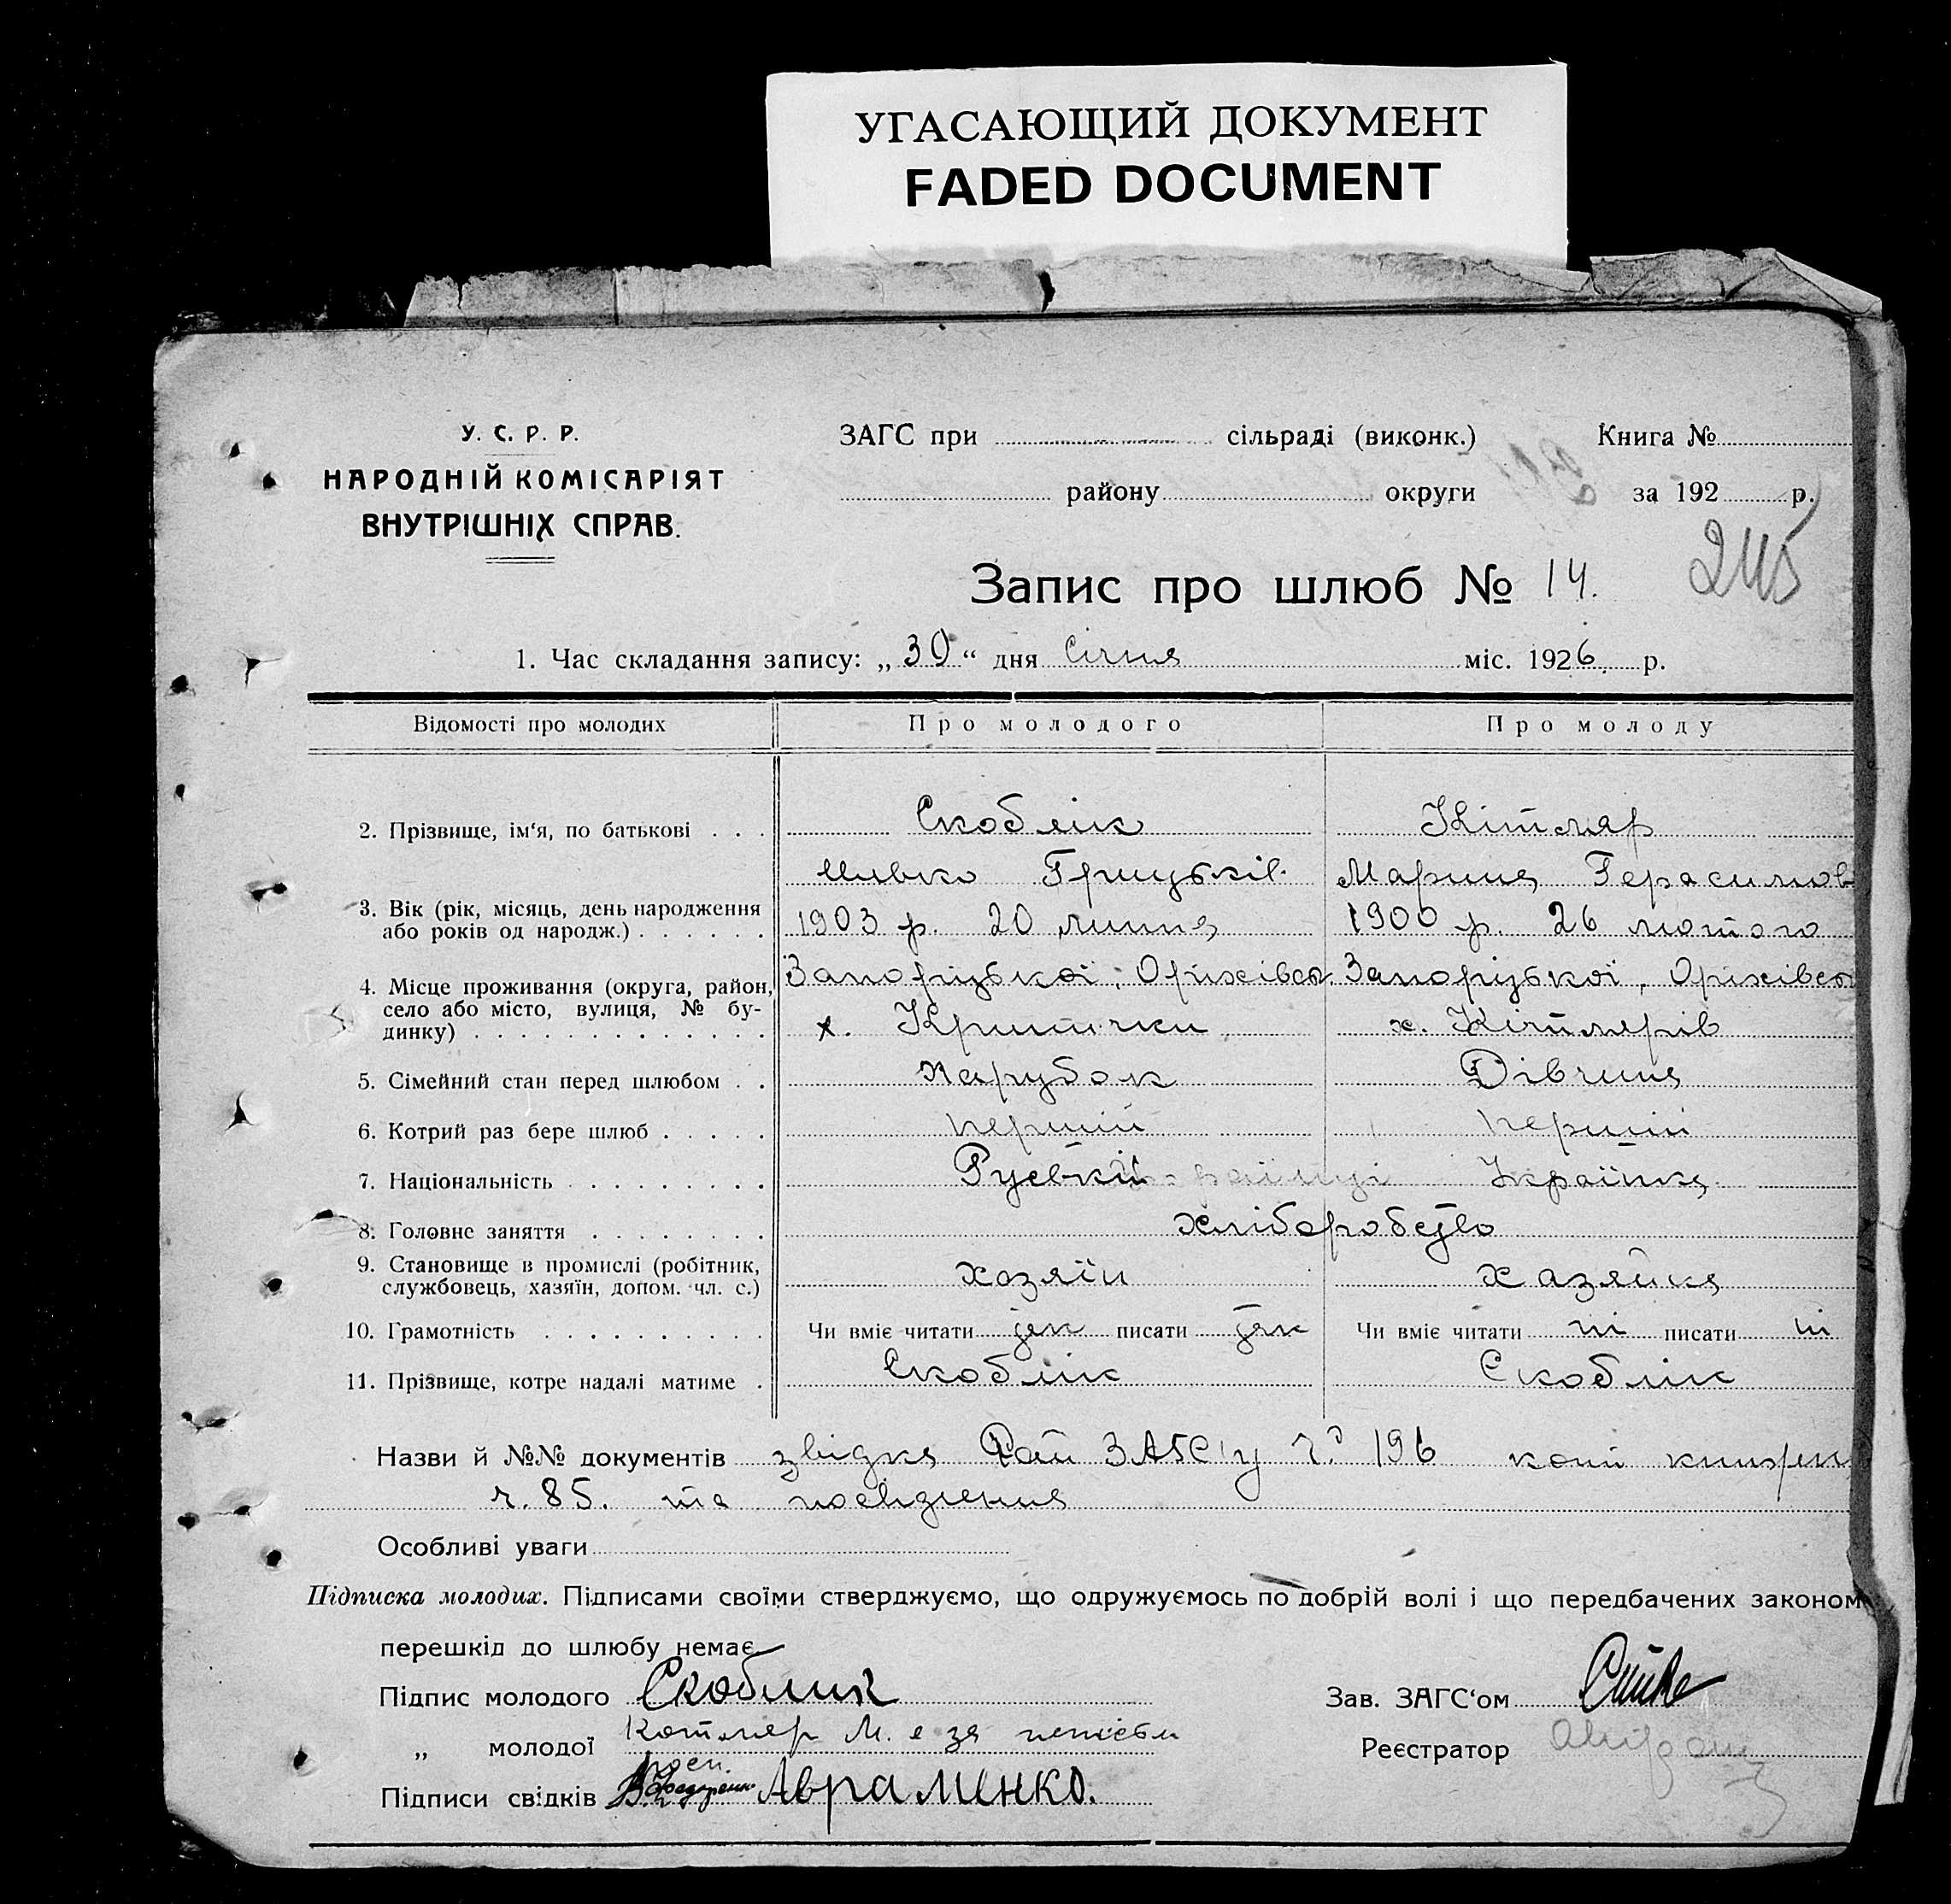 УГАСАЮЩИЙ ДОКУМЕНТ
FADED DOCUMENT
У. С. Р. Р.
НАРОДНІЙ КОМІСАРІЯТ
ВНУТРІШНІХ СПРАВ.
ЗАГС при сільраді (виконк.) Книга №
району округи за 192 р.
245
Запис про шлюб № 14.
1. Час складання запису: „30“ дня Січня міс. 1926 р.
Відомості про молодих Про молодого Про молоду
2. Прізвище, ім'я, по батькові . . . Скоблік Кітляр
Грицьків. Марина Герасимов
3. Вік (рік, місяць, день народження
або років од народж.) . . . . . . 1903 р. 20 липня 1900 р. 26 лютого
4. Місце проживання (округа, район, Запорізької, Оріхівськ. Запорізької, Оріхівськ
село або місто, вулиця, № бу-
динку) . . . . . . . . . . . . . х. Критички х. Кітлярів
5. Сімейний стан перед шлюбом . . Парубок Дівчина
6. Котрий раз бере шлюб . . . . . перший перший
7. Національність . . . . . . . . . Руський Українка
8. Головне заняття . . . . . . . . хліборобство
9. Становище в промислі (робітник,
службовець, хазяїн, допом. чл. с.) хозяїн хазяйка
10. Грамотність . . . . . . . . . . Чи вміє читати так писати так Чи вміє читати ні писати ні
11. Прізвище, котре надалі матиме . Скоблік Скоблік
Назви й №№ документів звідка Рай ЗАГС'у ч. 196
ч. 85. та посвідчення
Особливі уваги
Підписка молодих. Підписами своїми стверджуємо, що одружуємось по добрій волі і що передбачених законом
перешкід до шлюбу немає.
Підпис молодого Скоблик Зав. ЗАГС'ом
„ молодої Котляр М. а за
Реєстратор
Підписи свідків Авраминко.